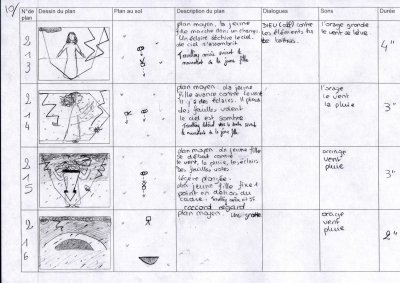 10/
N° de plan
Dessin du plan
Plan au sol
Description du plan
Dialogues
Sons
Durée
213
plan moyen. La jeune
fille marche dans un champ.
Un éclair déchire le ciel
ciel s'assombrit
Travelling arrière suivant le
mouvement de la jeune fille
DIEU (off) contre
les éléments tu
te battras.
l'orage gronde
le vent se lève
4"
214
plan moyen. la jeune
fille avance contre le vent
il y a des éclairs. Il pleut
des feuilles volent
le ciel est sombre
Travelling latéral suivant
le mouvement de la jeune fille
l'orage
le vent
la pluie
3"
215
plan moyen la jeune fille
se débat contre
le vent, la pluie, les éclairs
Des feuilles volent
légère plongée.
La jeune fille fixe 1
point en dehors du
cadre.
raccord regard
orage
vent
pluie
3"
216
plan moyen Une grotte
orage
vent
pluie
2"